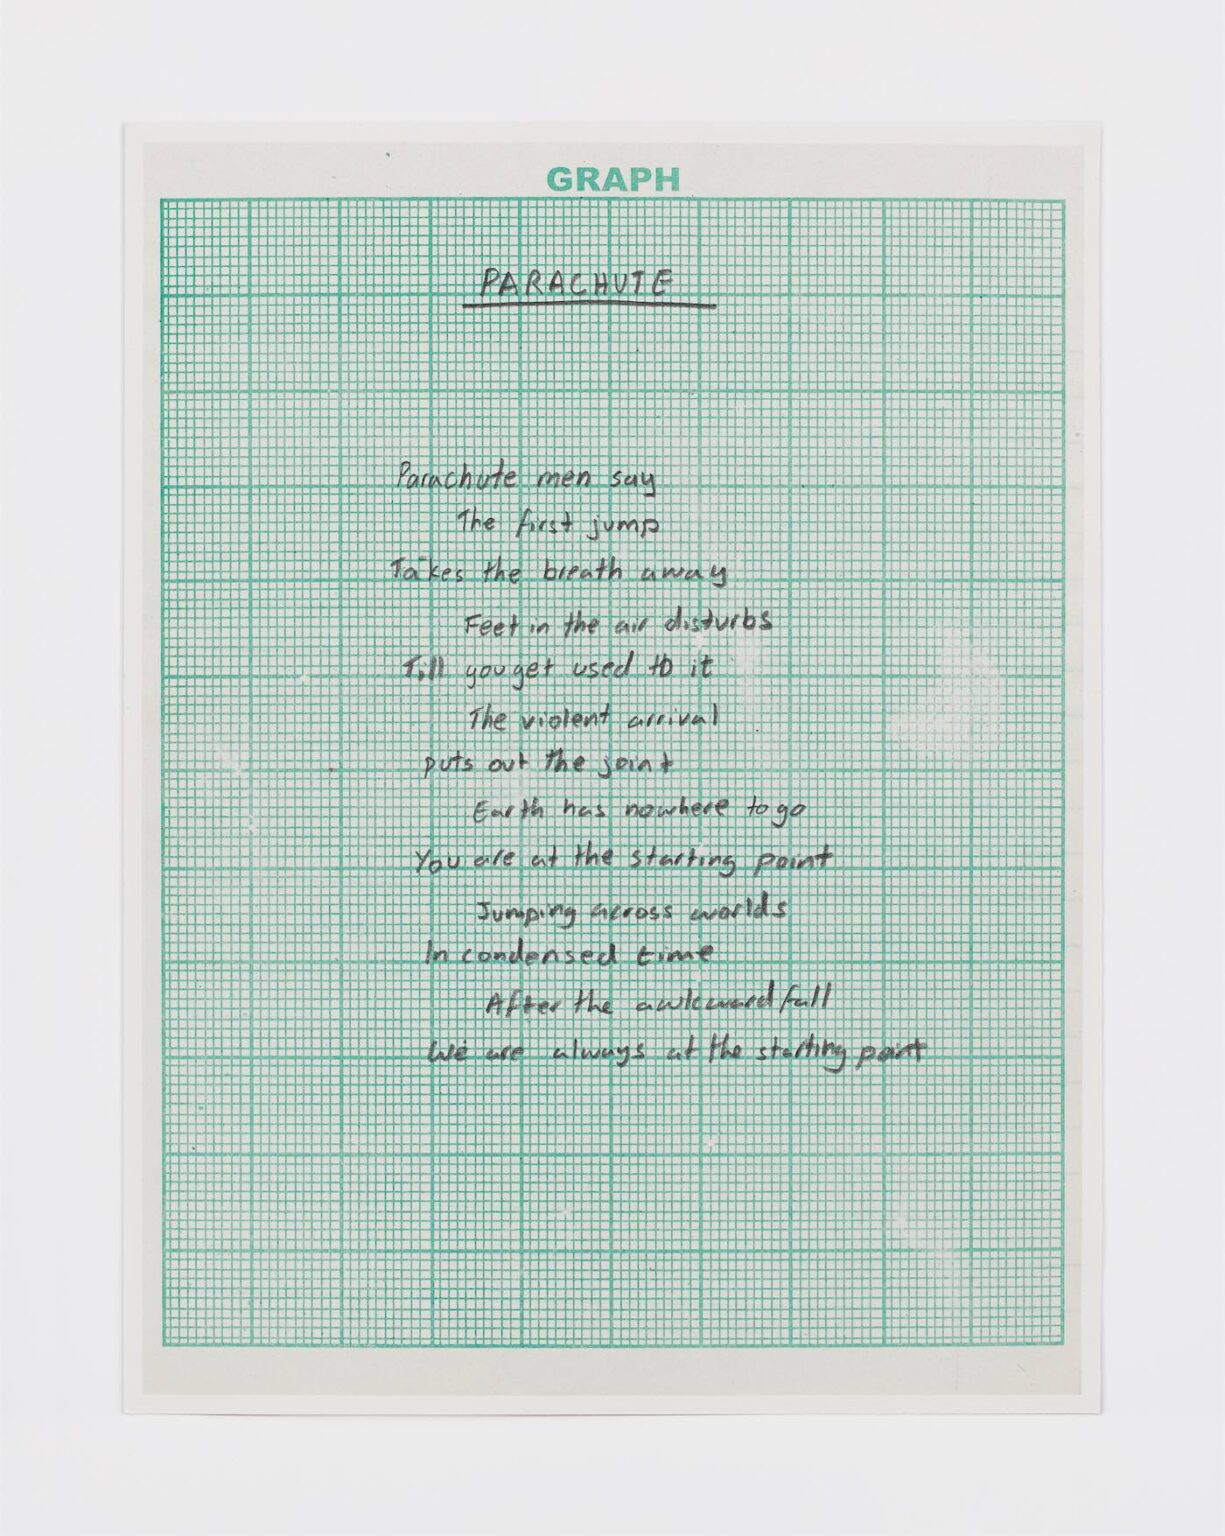 GRAPH
PARACHUTE
Parachute men say
The first jump
Takes the breath away
Feet in the air disturbs
Till you get used to it
The violent arrival
puts out the joint
Earth has nowhere to go
You are at the starting point
Jumping across worlds
In condensed time
After the awkward fall
We are always at the starting point